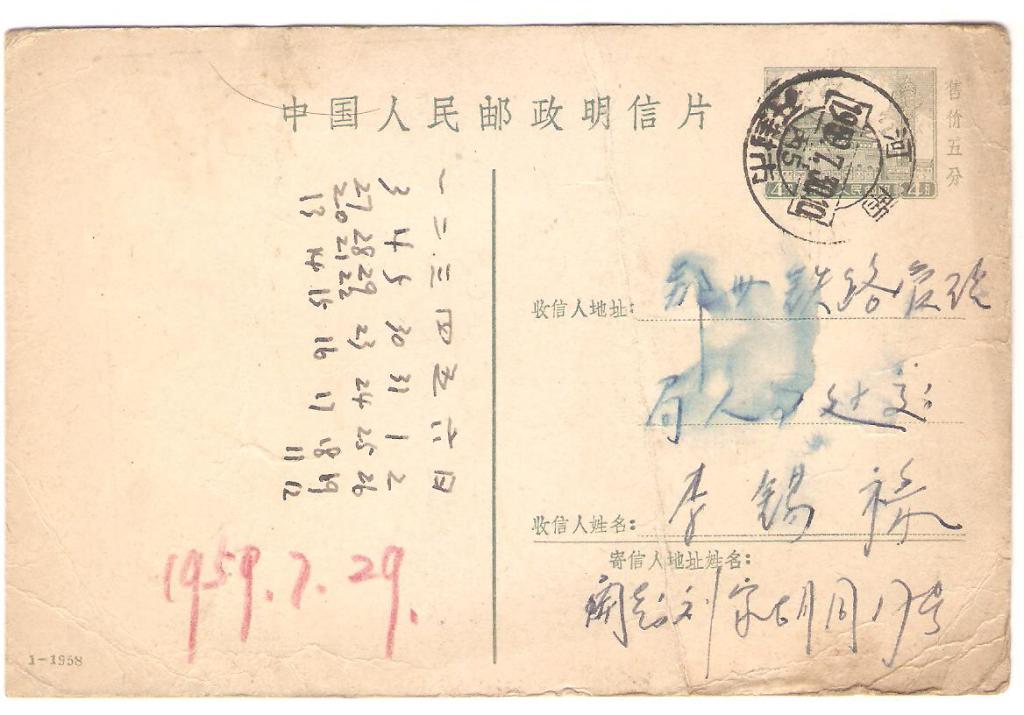 中国人民邮政明信片
售价五分
河南
开封市
1959.7.30.10
4分
中国人民邮政
4分
收信人地址：郑州铁路管理
局人事处交：
收信人姓名：李锡禄
寄信人地址姓名：
开封刘家胡同17号
一 二 三 四 五 六 日
3 4 5 30 31 1 2
27 28 29 23 24 25 26
20 21 22 16 17 18 19
13 14 15 11 12
1959.7.29.
1-1958